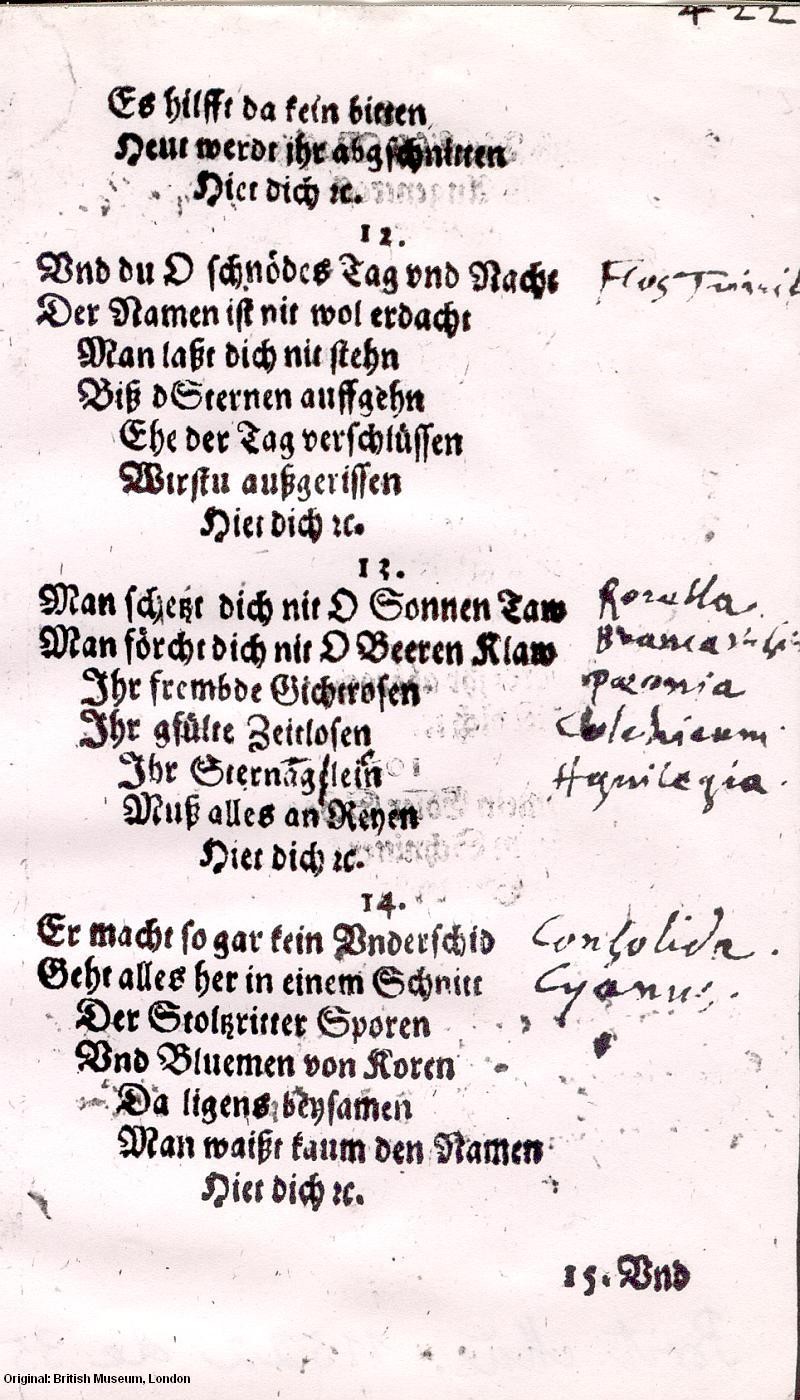 422
Es hilfft da kein bitten
Heut werdt ihr abgschnitten
Hiet dich ꝛc.
12.
Vnd du O schnödes Tag vnd Nacht
Flos
Der Namen ist nit wol erdacht
Man laßt dich nit stehn
Biß dSternen auffgehn
Ehe der Tag verschlüssen
Wirstu außgerissen
Hiet dich ꝛc.
13.
Man schetzt dich nit O Sonnen Taw
Rorella
Man förcht dich nit O Beeren Klaw
Branca
Ihr frembde Gichtrosen
pæonia
Ihr gfülte Zeitlosen
Colchicum
Ihr Sternäglein
Aquilegia.
Muß alles an Reyen
Hiet dich ꝛc.
14.
Er macht so gar kein Vnderschid
Consolida.
Geht alles her in einem Schnitt
Cyanus.
Der Stoltzritter Sporen
Vnd Bluemen von Koren
Da ligens beysamen
Man waißt kaum den Namen
Hiet dich ꝛc.
15. Vnd
Original: British Museum, London